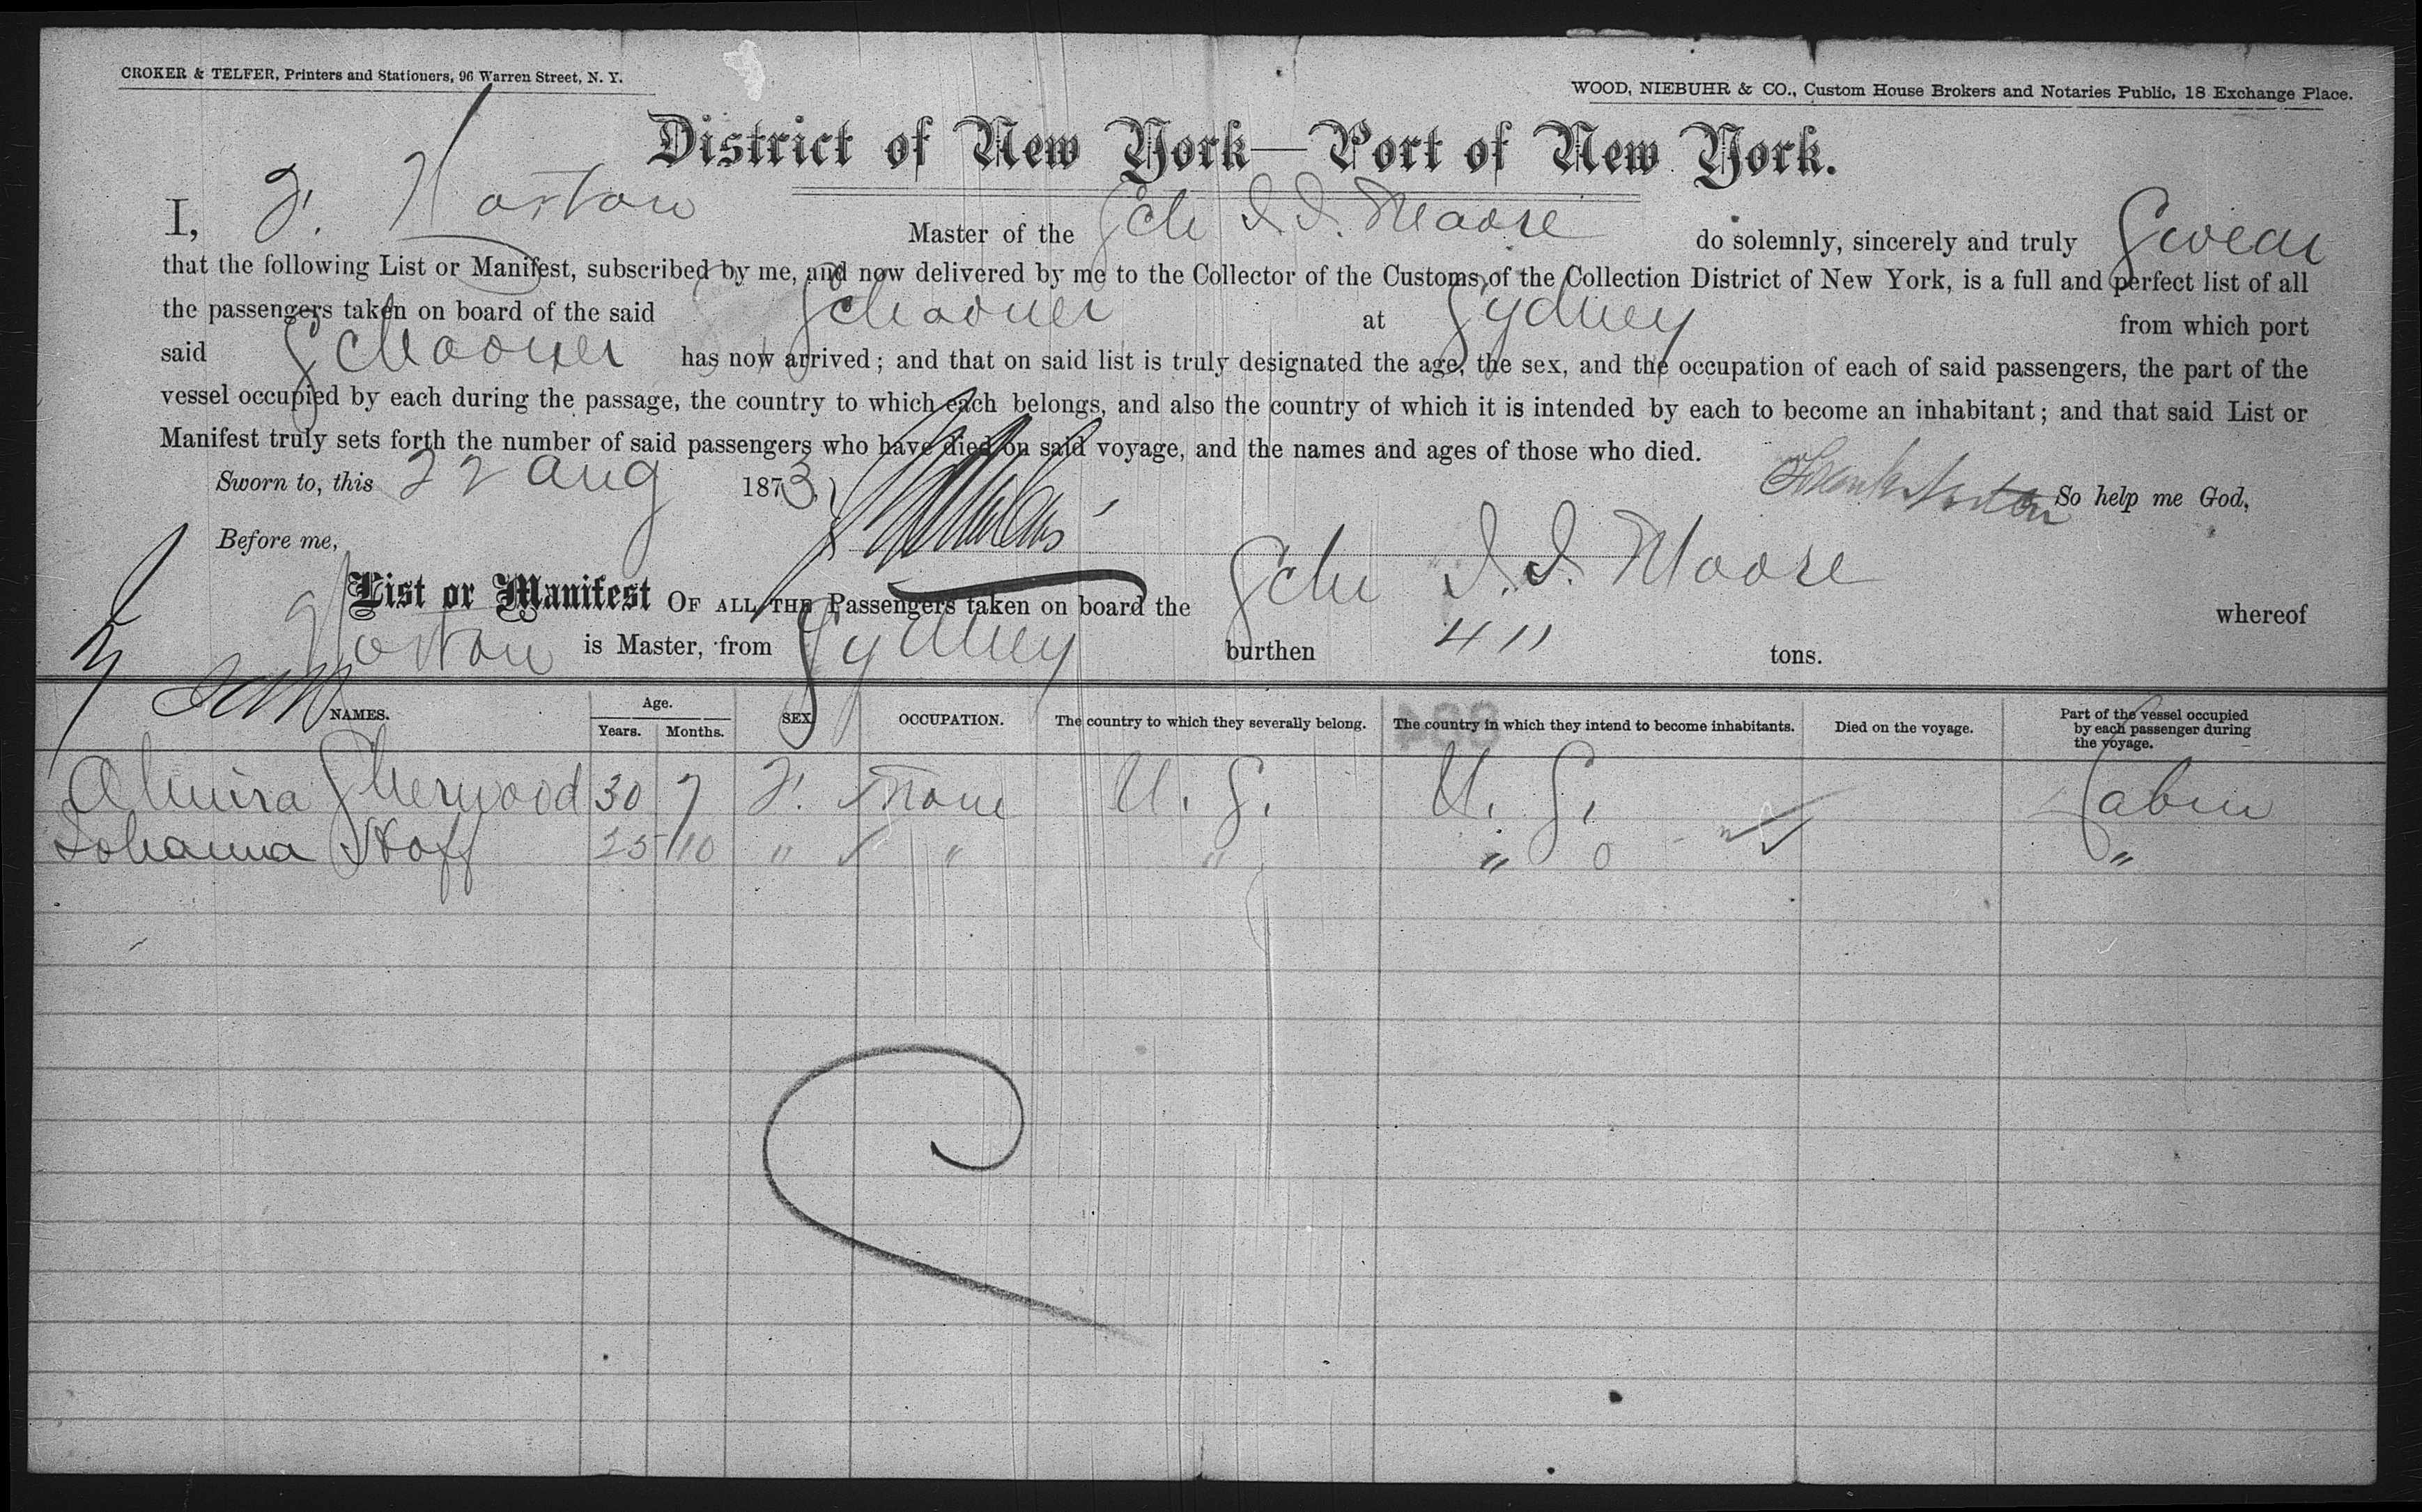 CROKER & TELFER, Printers and Stationers, 96 Warren Street, N. Y.
WOOD, NIEBUHR & CO., Custom House Brokers and Notaries Public, 18 Exchange Place.
District of New York—Port of New York.
I, F. Horton Master of the Schr I. I. Moore do solemnly, sincerely and truly Swear
that the following List or Manifest, subscribed by me, and now delivered by me to the Collector of the Customs of the Collection District of New York, is a full and perfect list of all
the passengers taken on board of the said Schooner at Sydney from which port
said Schooner has now arrived; and that on said list is truly designated the age, the sex, and the occupation of each of said passengers, the part of the
vessel occupied by each during the passage, the country to which each belongs, and also the country of which it is intended by each to become an inhabitant; and that said List or
Manifest truly sets forth the number of said passengers who have died on said voyage, and the names and ages of those who died.
Sworn to, this 22 Aug 1873, Frank Horton So help me God,
Before me,
List or Manifest OF ALL THE Passengers taken on board the Schr I. I. Moore whereof
Horton is Master, from Sydney burthen 411 tons.
NAMES. Age. Years. Months. SEX OCCUPATION. The country to which they severally belong. The country in which they intend to become inhabitants. Died on the voyage. Part of the vessel occupied by each passenger during the voyage.
Almira Sherwood 30 7 F. None U. S. U. S. Cabin
Johanna Hoff 25 10 " " " " "